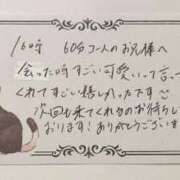 16時 60分コースのお兄様へ
会った時すごい可愛いって言って
くれてすごい嬉しかったです
次回も来てくれるのお待ちして
おります!ありがとうございま